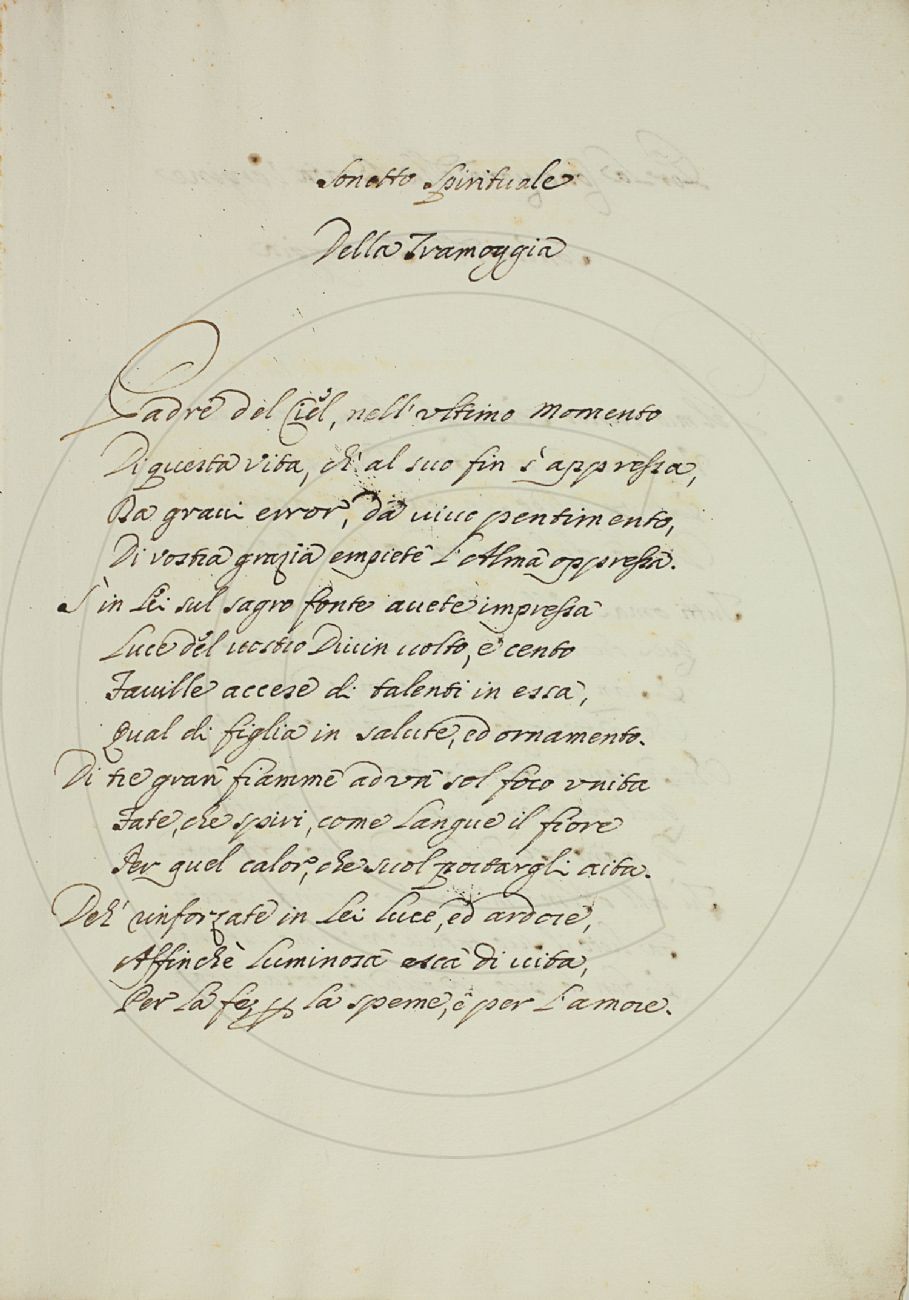 Sonetto Spirituale
Della Tramoggia
Padre del Ciel, nell'vltimo momento
Di questa vita, ch'al suo fin s'appressa,
Da graui error, da uiuo pentimento,
Di vostra grazia empiete l'Alma oppressa.
S'in Lei sul sagro fonte auete impressa
Luce del uostro Diuin uolto, e cento
Fauille accese di talenti in essa,
Qual di figlia in salute, ed ornamento.
Di tre gran fiamme ad vn sol foco vnita
Fate, che spiri, come langue il fiore
Per quel calor, che suol portargli aita.
Deh' rinforzate in Lei luce, ed ardore,
Affinchè luminosa esca di uita,
Per la fe, la speme, e per l'amore.